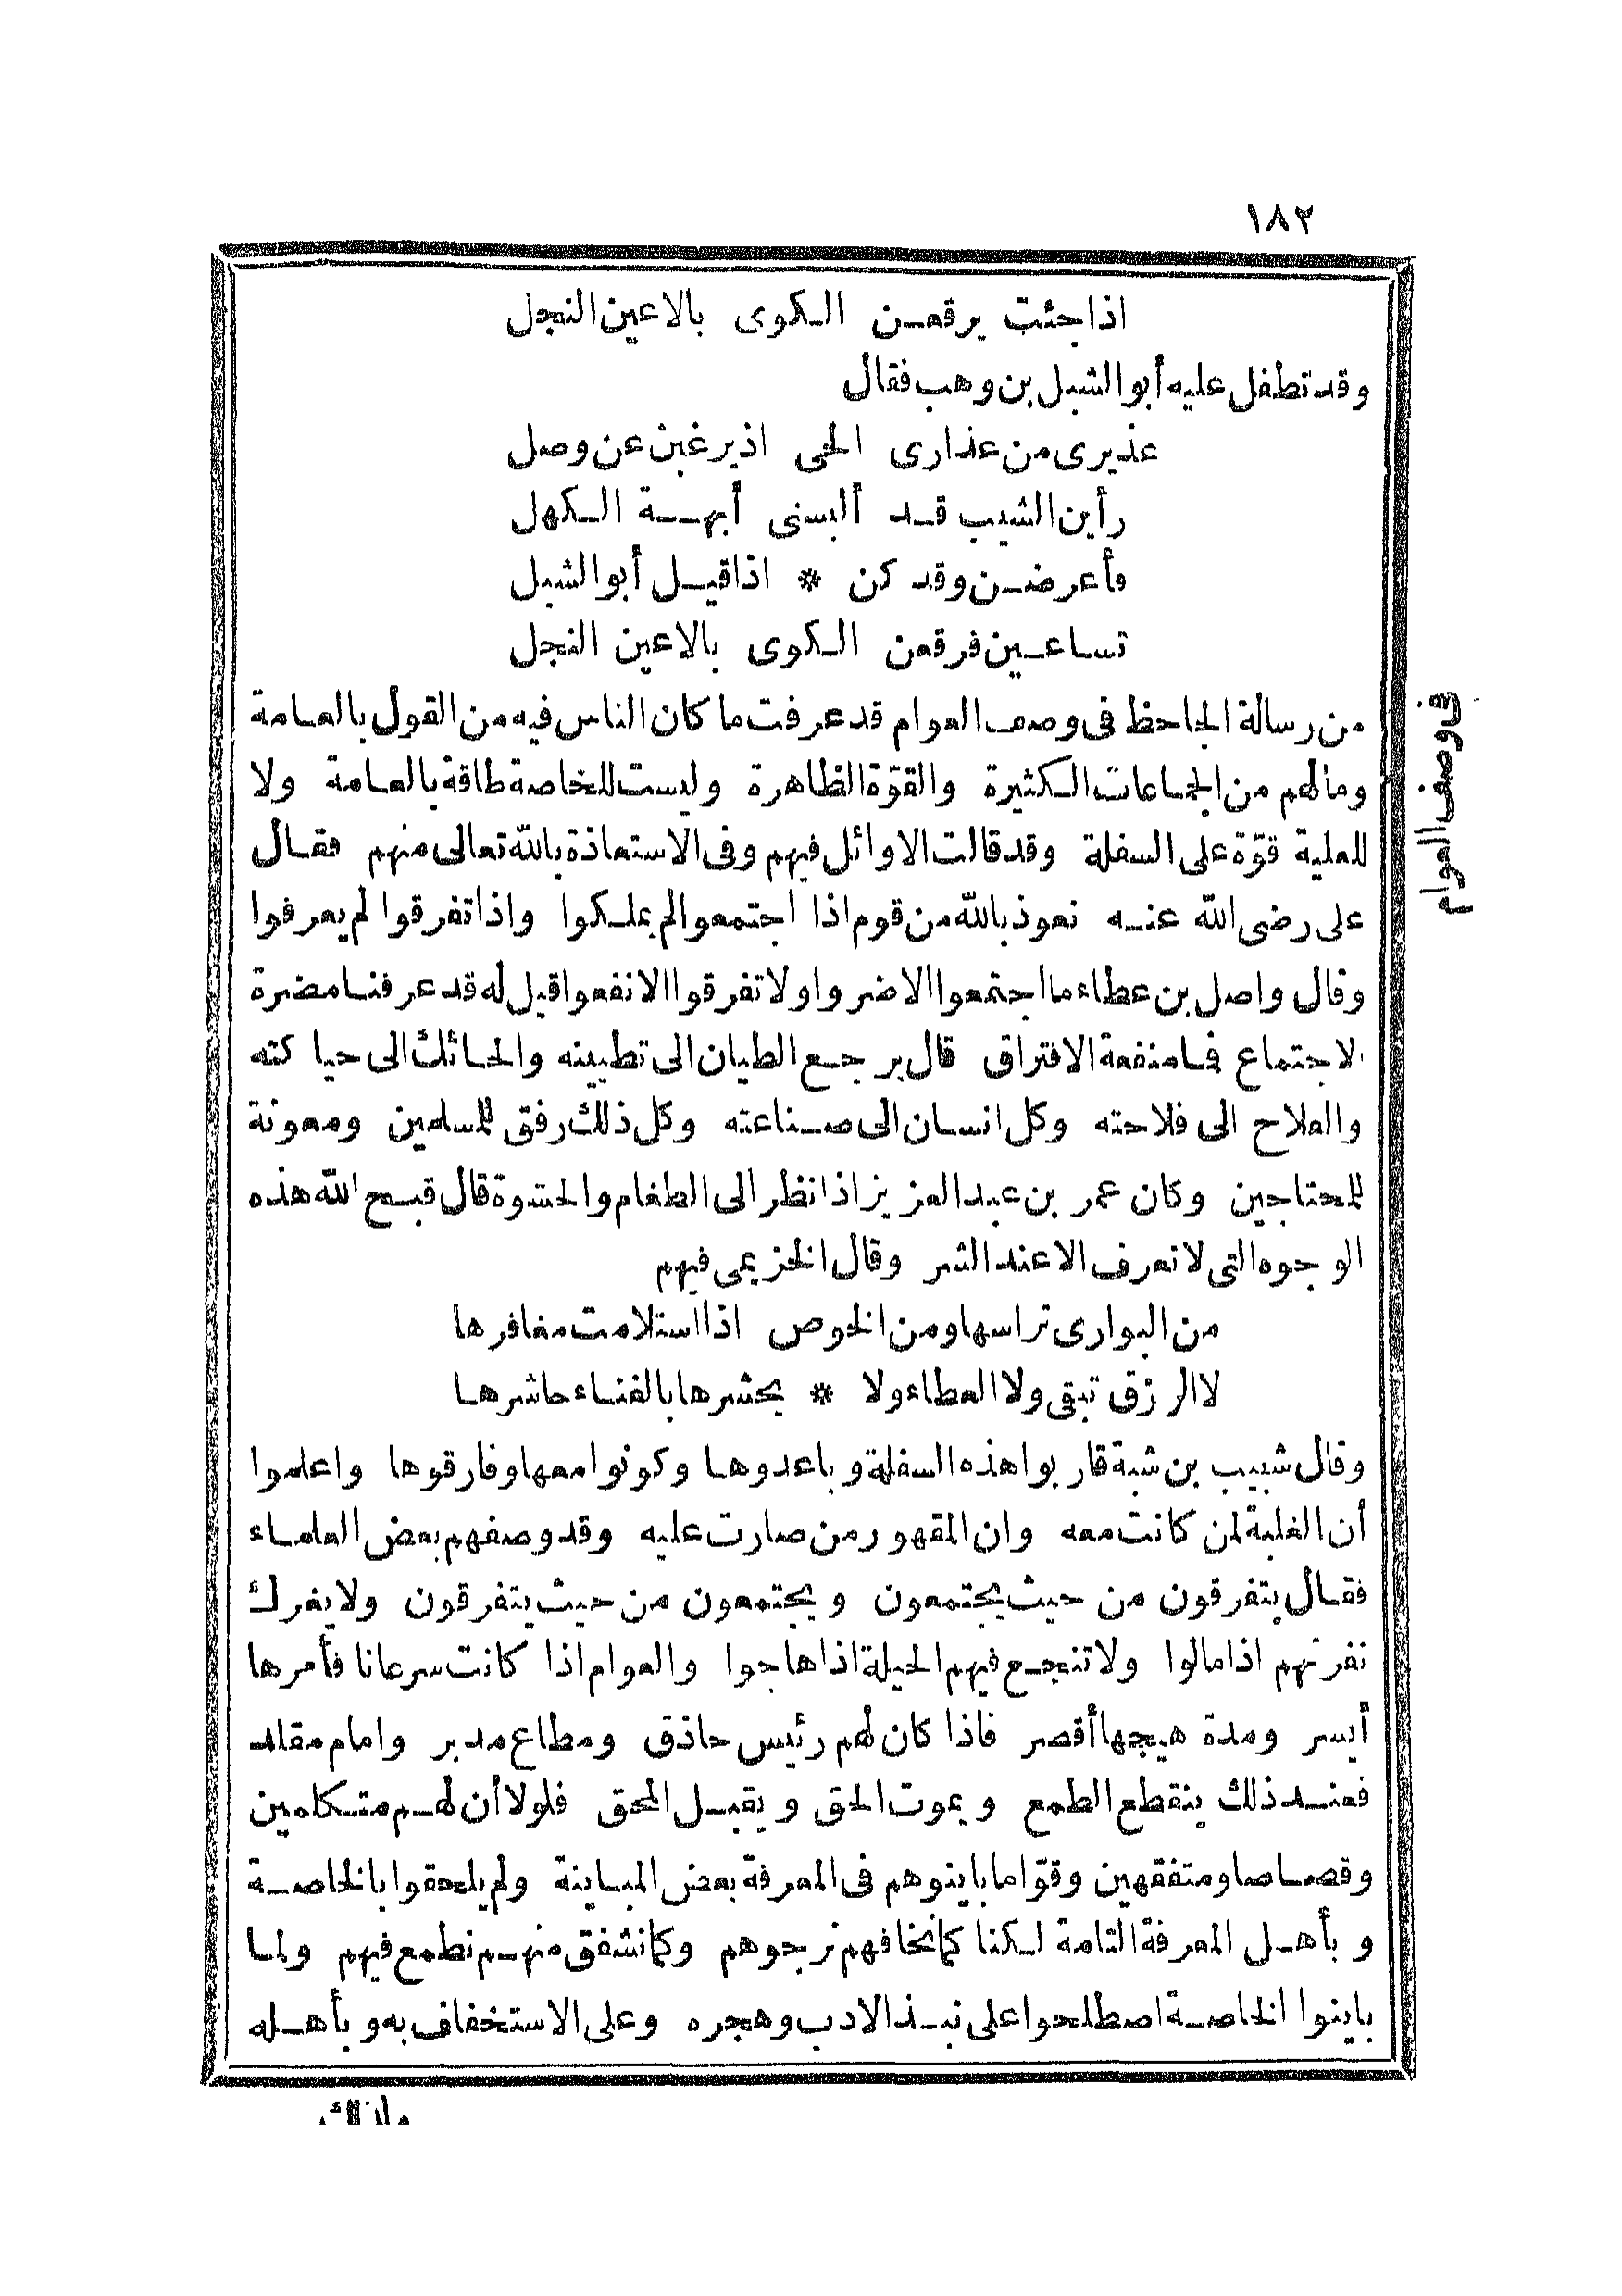 ١٨٢
اذا جئت يرقعن الكوى بالاعين النجل
وقد تطفل عليه أبو الشبل بن وهب فقال
عذيرى من عذارى الحى اذ يرغبن عن وصل
رأين الشيب قد ألبسنى أبهة الكهل
فأعرضن وقد كن * اذا قيل أبو الشبل
تساعين فرقعن الكوى بالاعين النجل
من رسالة الجاحظ فى وصف العوام قد عرفت ما كان الناس فيه من القول بالعامة
فى وصف العوام
ومالهم من الجماعات الكثيرة والقوّة الظاهرة وليست للخاصة طاقة بالعامة ولا
للعلية قوّة على السفلة وقد قالت الاوائل فيهم وفى الاستعاذة بالله تعالى منهم فقال
على رضى الله عنه نعوذ بالله من قوم اذا اجتمعوا لم يملكوا واذا تفرقوا لم يعرفوا
وقال واصل بن عطاء ما اجتمعوا الا ضروا ولا تفرقوا الا نفعوا قيل له قد عرفنا مضرة
الاجتماع فما منفعة الافتراق قال يرجع الطيان الى تطيينه والحائك الى حياكته
والملاح الى فلاحته وكل انسان الى صناعته وكل ذلك رفق للمسلمين ومعونة
للمحتاجين وكان عمر بن عبد العزيز اذا نظر الى الطغام والحشوة قال قبح الله هذه
الوجوه التى لا تعرف الا عند الشر وقال الخزيمى فيهم
من البوارى تراسها ومن الخوص اذا استلامت مغافرها
لا الرزق تبقى ولا العطاء ولا * يحشرها بالفناء حاشرها
وقال شبيب بن شبة قاربوا هذه السفلة وباعدوها وكونوا معها وفارقوها واعلموا
أن الغلبة لمن كانت معه وان المقهور من صارت عليه وقد وصفهم بعض العلماء
فقال يتفرقون من حيث يجتمعون ويجتمعون من حيث يتفرقون ولا يغرك
نفرتهم اذا مالوا ولا تنجع فيهم الحيلة اذا هاجوا والعوام اذا كانت سرعانا فأمرها
أيسر ومدة هيجها أقصر فاذا كان لهم رئيس حاذق ومطاع مدبر وامام مقلد
فعند ذلك ينقطع الطمع ويموت الحق ويقبل المحق فلولا أن لهم متكلمين
وقصاصا ومتفقهين وقوّاما باينوهم فى المعرفة بعض المباينة ولم يلحقوا بالخاصة
وبأهل المعرفة التامة لكنا كما نخافهم نرجوهم وكما نشفق منهم نطمع فيهم ولما
باينوا الخاصة اصطلحوا على نبذ الادب وهجره وعلى الاستخفاف به وبأهله